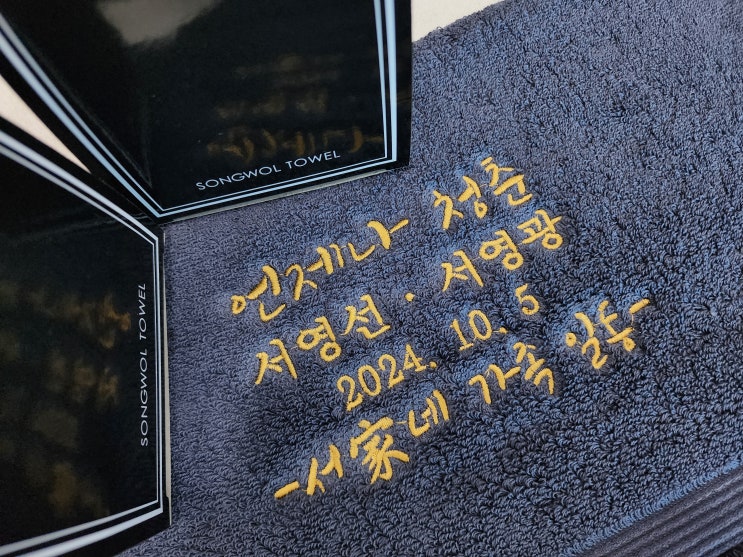 SONGWOL TOWEL
SONGWOL TOWEL
언제나 청춘
서영선 · 서영광
2024. 10. 5
-서家네 가족 일동-